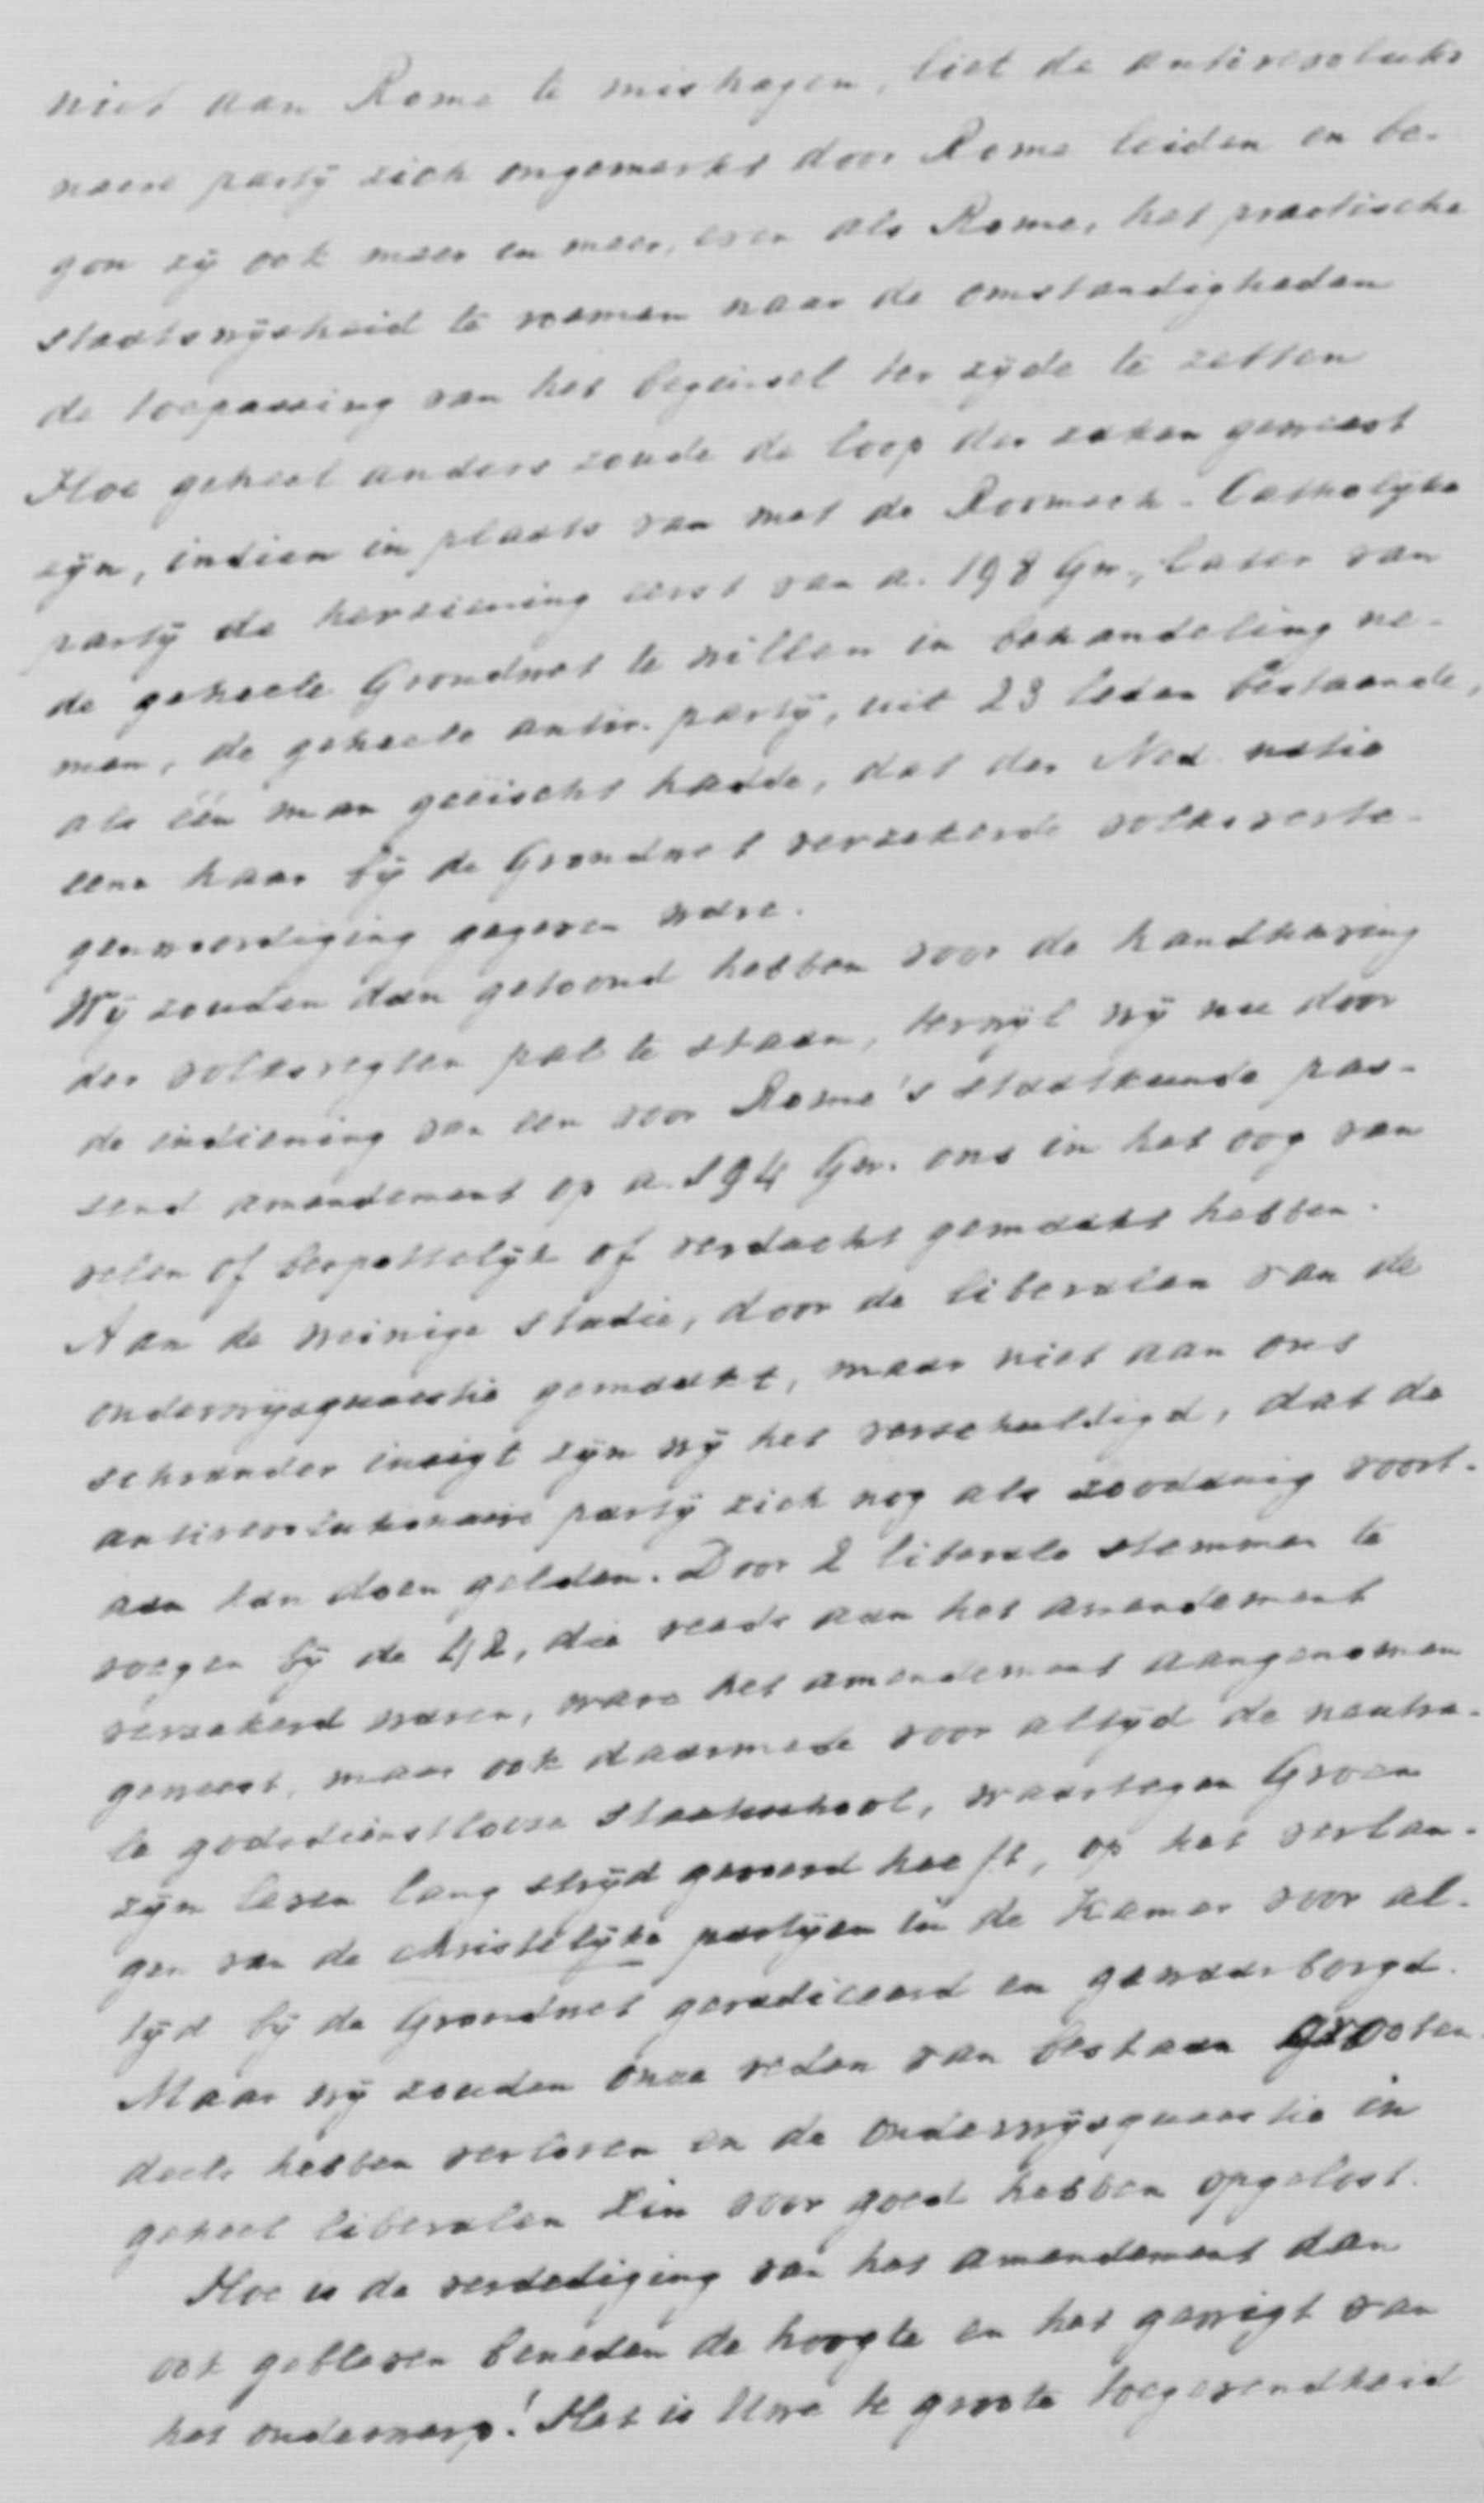 niet aan Rome te mishagen, liet de antirevolutio
naire party zich ongemerkt door Rome leiden en be-
gon zy ook meer en meer, even als Rome, het practische
staatswysheid te noemen naar de omstandigheden
de toepassing van het beginsel ter zyde te zetten
Hoe geheel anders zoude de loop der zaken geweest
zyn, indien in plaats van met de Roomsch-Catholyke
party de herziening eerst van a. 198 Gw., later van
de geheele Grondwet te willen in behandeling ne-
men, de geheele antir. party, uit 23 leden bestaande,
als één man geëischt hadde, dat der Ned. natie
eene haar by de Grondwet verzekerde volksverte-
genwoordiging gegeven ware.
Wy zouden dan getoond hebben voor de handhaving
der volksregten pal te staan, terwyl wy nu door
de indiening van een voor Rome's staatkunde pas-
send amendement op a. 194 Gw. ons in het oog van
velen of bespottelyk of verdacht gemaakt hebben.
Aan de weinige studie, door de liberalen van de
onderwysquaestie gemaakt, maar niet aan ons
schrander inzigt zyn wy het verschuldigd, dat de
antirevolutionaire party zich nog als zoodanig voort-
aan kan doen gelden. Door 2 liberale stemmen te
voegen by de 42, die reeds aan het amendement
verzekerd waren, ware het amendement aangenomen
geweest, maar ook daarmede voor altyd de neutra-
le godsdienstlooze staatsschool, waartegen Groen
zyn leven lang stryd gevoerd heeft, op het verlan-
gen van de christelyke partyen in de Kamer voor al-
tyd by de Grondwet geradiceerd en gewaarborgd.
Maar wy zouden onze reden van bestaan grooten-
deels hebben verloren en de onderwysquaestie in
geheel liberalen zin voor goed hebben opgelost.
Hoe is de verdediging van het amendement dan
ook gebleven beneden de hoogte en het gewigt van
het onderwerp! Het is Uwe te groote toegevendheid